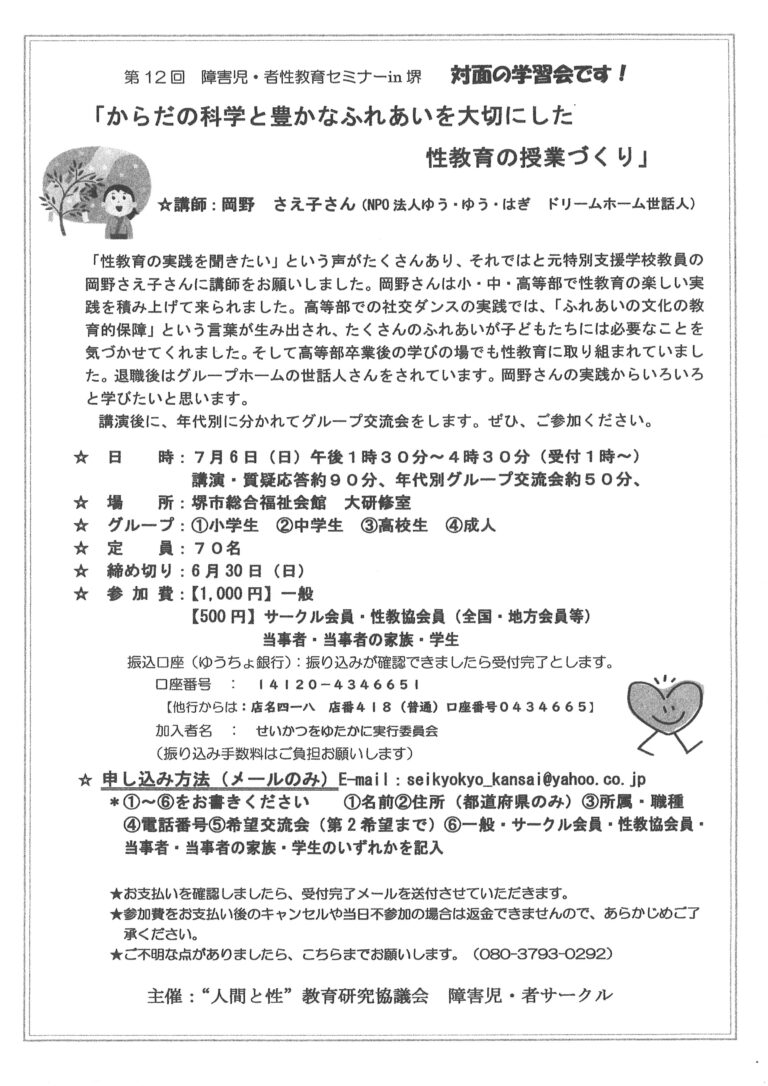 第12回　障害児・者性教育セミナーin 堺　対面の学習会です！
「からだの科学と豊かなふれあいを大切にした
性教育の授業づくり」
☆講師：岡野　さえ子さん（NPO 法人ゆう・ゆう・はぎ　ドリームホーム世話人）
「性教育の実践を聞きたい」という声がたくさんあり、それではと元特別支援学校教員の
岡野さえ子さんに講師をお願いしました。岡野さんは小・中・高等部で性教育の楽しい実
践を積み上げて来られました。高等部での社交ダンスの実践では、「ふれあいの文化の教
育的保障」という言葉が生み出され、たくさんのふれあいが子どもたちには必要なことを
気づかせてくれました。そして高等部卒業後の学びの場でも性教育に取り組まれていまし
た。退職後はグループホームの世話人さんをされています。岡野さんの実践からいろいろ
と学びたいと思います。
講演後に、年代別に分かれてグループ交流会をします。ぜひ、ご参加ください。
☆　日　　時：７月６日（日）午後１時３０分～４時３０分（受付１時～）
講演・質疑応答約９０分、年代別グループ交流会約５０分、
☆　場　　所：堺市総合福祉会館　大研修室
☆　グループ：①小学生　②中学生　③高校生　④成人
☆　定　　員：７０名
☆　締め切り：6 月 30 日（日）
☆　参 加 費：【1,000 円】一般
【500 円】サークル会員・性教協会員（全国・地方会員等）
当事者・当事者の家族・学生
振込口座（ゆうちょ銀行）：振り込みが確認できましたら受付完了とします。
口座番号　：　１４１２０－４３４６６５１
【他行からは：店名四一八　店番４１８（普通）口座番号０４３４６６５】
加入者名　：　せいかつをゆたかに実行委員会
（振り込み手数料はご負担お願いします）
☆ 申し込み方法（メールのみ）E-mail：seikyokyo_kansai@yahoo.co.jp
＊①～⑥をお書きください　　①名前②住所（都道府県のみ）③所属・職種
④電話番号⑤希望交流会（第２希望まで）⑥一般・サークル会員・性教協会員・
当事者・当事者の家族・学生のいずれかを記入
★お支払いを確認しましたら、受付完了メールを送付させていただきます。
★参加費をお支払い後のキャンセルや当日不参加の場合は返金できませんので、あらかじめご了
承ください。
★ご不明な点がありましたら、こちらまでお願いします。（080-3793-0292）
主催：“人間と性”教育研究協議会　障害児・者サークル